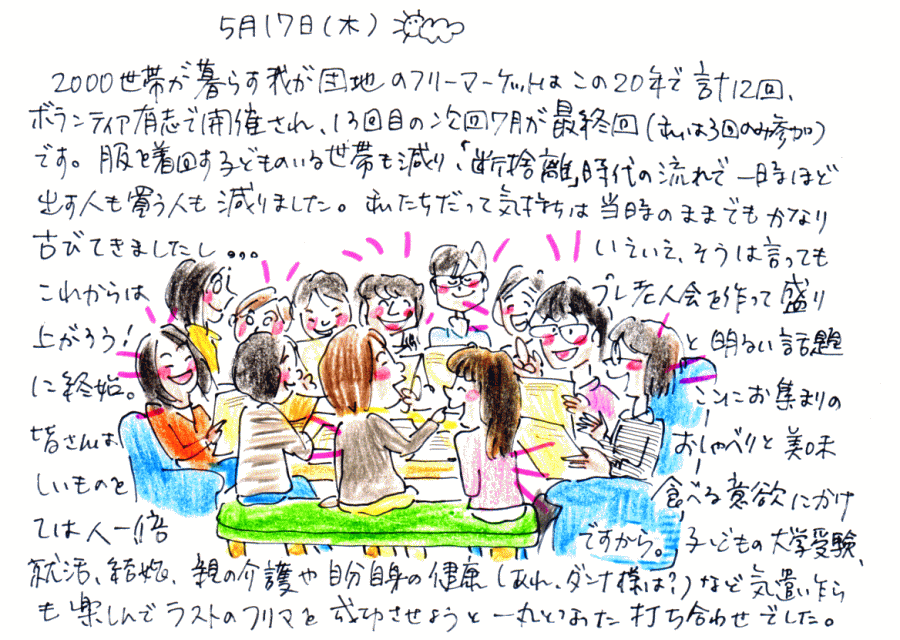 5月17日(木)
2000世帯が暮らす我が団地のフリーマーケットはこの20年で計12回、
ボランティア有志で開催され、13回目の次回7月が最終回(私は3回のみ参加)
です。服を着回す子どものいる世帯も減り、「断捨離」時代の流れで一時ほど
出す人も買う人も減りました。私たちだって気持ちは当時のままでもかなり
古びてきましたし...
いえいえ、そうは言っても
これからは
プレ老人会を作って盛り
上がろう!
と明るい話題
に終始。
ここにお集まりの
皆さんは、
おしゃべりと美味
しいものを
食べる意欲にかけ
ては人一倍
ですから。子どもの大学受験、
就活、結婚、親の介護や自分自身の健康(あれ、ダンナ様は?)など気遣いながら
も楽しんでラストのフリマを成功させようと一丸となった打ち合わせでした。